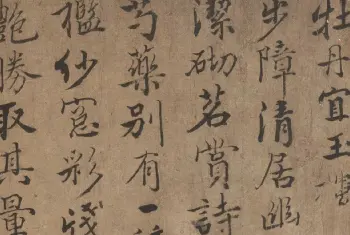 牡丹宜玉
步障清居幽
潔砌茗賞詩
芍藥別有一
檻紗窓彩牋
艷勝取其量